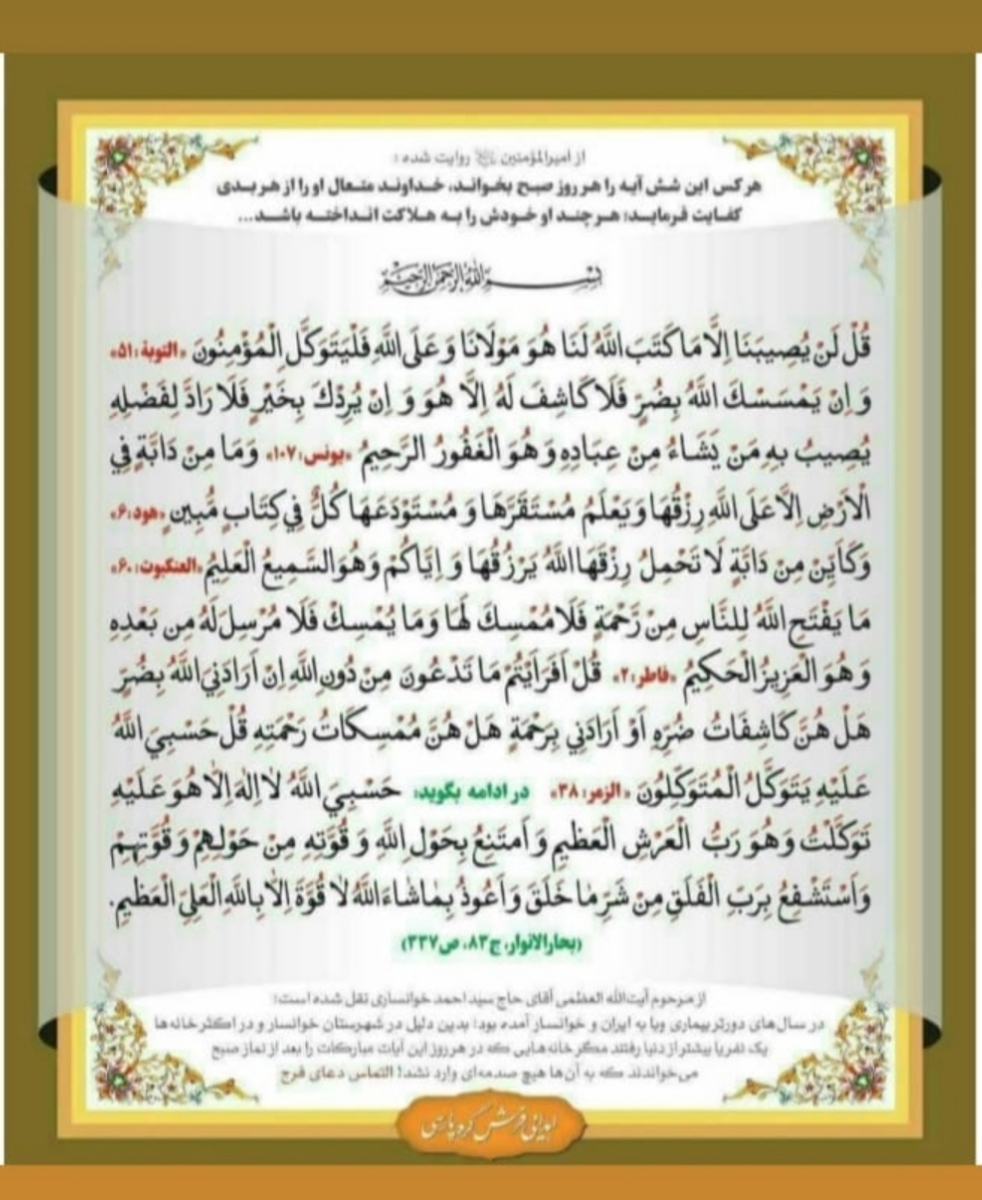 از امیرالمؤمنین روایت شده :
هر کس این شش آیه را هر روز صبح بخواند، خداوند متعال او را از هر بدی
کفایت فرماید؛ هر چند او خودش را به هلاکت انداخته باشد...
بِسْمِ اللهِ الرَّحْمنِ الرَّحِیمِ
قُلْ لَنْ یُصِیبَنَا اِلَّا مَا کَتَبَ اللهُ لَنَا هُوَ مَوْلَانَا وَ عَلَی اللهِ فَلْیَتَوَکَّلِ الْمُؤْمِنُونَ «التوبة: ۵۱»
وَ اِنْ یَمْسَسْكَ اللهُ بِضُرٍّ فَلَا کَاشِفَ لَهُ اِلَّا هُوَ وَ اِنْ یُرِدْكَ بِخَیْرٍ فَلَا رَادَّ لِفَضْلِهِ
یُصِیبُ بِهِ مَنْ یَشَاءُ مِنْ عِبَادِهِ وَ هُوَ الْغَفُورُ الرَّحِیمُ «یونس: ۱۰۷» وَ مَا مِنْ دَابَّةٍ فِي
الْاَرْضِ اِلَّا عَلَی اللهِ رِزْقُهَا وَ یَعْلَمُ مُسْتَقَرَّهَا وَ مُسْتَوْدَعَهَا کُلٌّ فِي کِتَابٍ مُّبِینٍ «هود: ۶»
وَ کَاَیِّنْ مِنْ دَابَّةٍ لَا تَحْمِلُ رِزْقَهَا اللهُ یَرْزُقُهَا وَ اِیَّاکُمْ وَ هُوَ السَّمِیعُ الْعَلِیمُ «العنکبوت: ۶۰»
مَا یَفْتَحِ اللهُ لِلنَّاسِ مِنْ رَّحْمَةٍ فَلَا مُمْسِكَ لَهَا وَ مَا یُمْسِكْ فَلَا مُرْسِلَ لَهُ مِن بَعْدِهِ
وَ هُوَ الْعَزِیزُ الْحَکِیمُ «فاطر: ۲» قُلْ اَفَرَاَیْتُمْ مَا تَدْعُونَ مِنْ دُونِ اللهِ اِنْ اَرَادَنِيَ اللهُ بِضُرٍّ
هَلْ هُنَّ کَاشِفَاتُ ضُرِّهِ اَوْ اَرَادَنِي بِرَحْمَةٍ هَلْ هُنَّ مُمْسِکَاتُ رَحْمَتِهِ قُلْ حَسْبِيَ اللهُ
عَلَیْهِ یَتَوَکَّلُ الْمُتَوَکِّلُونَ «الزمر: ۳۸» در ادامه بگوید: حَسْبِيَ اللهُ لَا اِلٰهَ اِلَّا هُوَ عَلَیْهِ
تَوَکَّلْتُ وَ هُوَ رَبُّ الْعَرْشِ الْعَظِیمِ وَ اَمْتَنِعُ بِحَوْلِ اللهِ وَ قُوَّتِهِ مِنْ حَوْلِهِمْ وَ قُوَّتِهِمْ
وَ اَسْتَشْفِعُ بِرَبِّ الْفَلَقِ مِنْ شَرِّ مَا خَلَقَ وَ اَعُوذُ بِمَا شَاءَ اللهُ لَا قُوَّةَ اِلَّا بِاللهِ الْعَلِيِّ الْعَظِیمِ.
(بحارالانوار، ج۸۳، ص۳۳۷)
از مرحوم آیت‌الله العظمی آقای حاج سید احمد خوانساری نقل شده است؛
در سال‌های دورتر بیماری وبا به ایران و خوانسار آمده بود؛ بدین دلیل در شهرستان خوانسار و در اکثر خانه‌ها
یک نفر یا بیشتر از دنیا رفتند مگر خانه‌هایی که در هر روز این آیات مبارکات را بعد از نماز صبح
می‌خواندند که به آن‌ها هیچ صدمه‌ای وارد نشد! التماس دعای فرج
اهدائی فرش گره پارسی